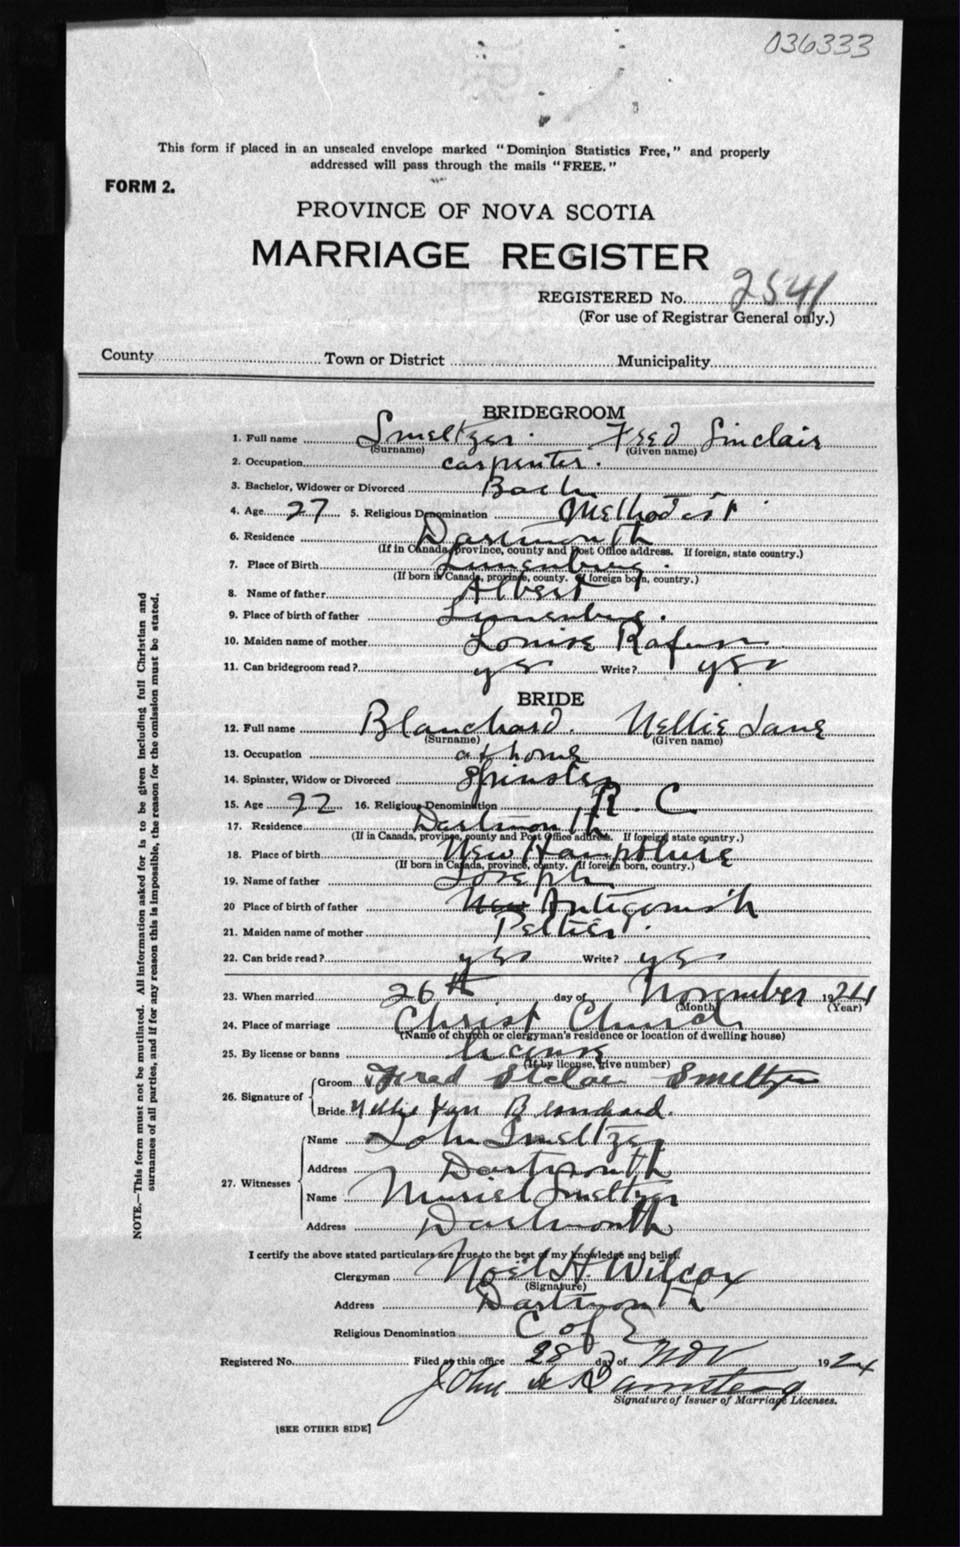 036333
This form if placed in an unsealed envelope marked "Dominion Statistics Free," and properly
addressed will pass through the mails "FREE."
FORM 2.
PROVINCE OF NOVA SCOTIA
MARRIAGE REGISTER
REGISTERED No. 2541
(For use of Registrar General only.)
County Town or District Municipality
BRIDEGROOM
1. Full name Smeltzer. Fred Sinclair
(Surname) (Given name)
2. Occupation carpenter.
3. Bachelor, Widower or Divorced Bach
4. Age 27 5. Religious Denomination Methodist
6. Residence Dartmouth
(If in Canada, province, county and Post Office address. If foreign, state country.)
7. Place of Birth Lunenburg.
(If born in Canada, province, county. If foreign born, country.)
8. Name of father Albert
9. Place of birth of father Lunenburg.
10. Maiden name of mother Louise Rafuse
11. Can bridegroom read? yes Write? yes
BRIDE
12. Full name Blanchard. Nellie Jane
(Surname) (Given name)
13. Occupation at home
14. Spinster, Widow or Divorced Spinster
15. Age 22 16. Religious Denomination R. C
17. Residence Dartmouth
(If in Canada, province, county and Post Office address. If foreign state country.)
18. Place of birth New Hampshire
(If born in Canada, province, county. If foreign born, country.)
19. Name of father Joseph
20 Place of birth of father New Antigonish
21. Maiden name of mother Peltier.
22. Can bride read? yes Write? yes
23. When married 26th day of November 1924
(Month) (Year)
24. Place of marriage Christ Church
(Name of church or clergyman's residence or location of dwelling house)
25. By license or banns license
(If by license, give number)
26. Signature of Groom Fred Smeltzer
Bride Nellie Jane Blanchard.
27. Witnesses Name John Smeltzer
Address Dartmouth
Name Muriel Smeltzer
Address Dartmouth
I certify the above stated particulars are true to the best of my knowledge and belief.
Clergyman Noel H. Wilcox
(Signature)
Address Dartmouth
Religious Denomination C of E
Registered No. Filed at this office 28 day of Nov 1924
John Armstrong
Signature of Issuer of Marriage Licenses.
[SEE OTHER SIDE]
NOTE.—This form must not be mutilated. All information asked for is to be given including full Christian and
surnames of all parties, and if for any reason this is impossible, the reason for the omission must be stated.